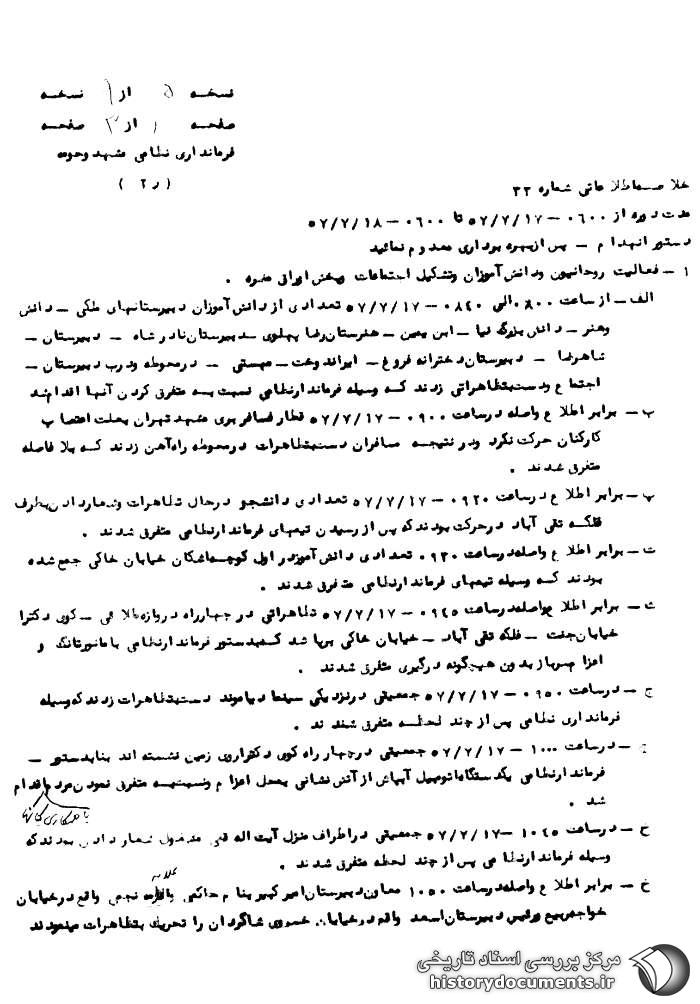 نسخه ۵ از ۹ نسخه
صفحه ۱ از ۳ صفحه
فرمانداری نظامی مشهد وحومه
( ر۲ )
خلاصه اطلاعاتی شماره ۳۲
مدت دوره از ۰۶۰۰ – ۵۷/۷/۱۷ تا ۰۶۰۰ – ۵۷/۷/۱۸
دستور انهدام – پس از بهره برداری معدوم نمائید
۱ – فعالیت روحانیون ودانش آموزان وتشکیل اجتماعات وپخش اوراق مضره .
الف – از ساعت ۰۸۰۰ الی ۰۸۴۰ – ۵۷/۷/۱۷ تعدادی از دانش آموزان دبیرستانهای ملکی – دانش
وهنر – دانش بزرگ نیا – ابن یمین – هنرستان رضا پهلوی – دبیرستان نادر شاه – دبیرستان –
شاهرضا – دبیرستان دخترانه فروغ – ایراندخت – مهستی – درمحوطه ودرب دبیرستان –
اجتماع ودست بتظاهراتی زدند که وسیله فرماندارنظامی نسبت به متفرق کردن آنها اقدام شد
ب – برابر اطلاع واصله درساعت ۰۹۰۰ – ۵۷/۷/۱۷ قطار مسافربری مشهد تهران بعلت اعتصاب
کارکنان حرکت نکرد ودر نتیجه مسافران دست بتظاهرات درمحوطه راه آهن زدند که بلا فاصله
متفرق شدند .
پ – برابر اطلاع درساعت ۰۹۲۰ – ۵۷/۷/۱۷ تعدادی دانشجو درحال تظاهرات وشعاردادن بطرف
فلکه تقی آباد درحرکت بودند که پس از رسیدن تیمهای فرماندارنظامی متفرق شدند .
ت – برابر اطلاع واصله درساعت ۰۹۳۰ تعدادی دانش آموز در اول کوچه اشکان خیابان خاکی جمع شده
بودند که وسیله تیمهای فرماندارنظامی متفرق شدند .
ث – برابر اطلاع واصله درساعت ۰۹۴۵ – ۵۷/۷/۱۷ تظاهراتی در چهارراه دروازه طلائی – کوی دکترا
خیابان جنت – فلکه تقی آباد – خیابان خاکی برپا شد که بدستور فرماندارنظامی با مانورتانک و
اعزام سرباز بدون هیچگونه درگیری متفرق شدند .
ج – درساعت ۰۹۵۰ – ۵۷/۷/۱۷ جمعیتی درنزدیکی سینما دیاموند دست بتظاهرات زدند که وسیله
فرمانداری نظامی پس از چند لحظه متفرق شدند .
چ – درساعت ۱۰۰۰ – ۵۷/۷/۱۷ جمعیتی درچهارراه کوی دکترا روی زمین نشسته اند بنا بدستور –
فرماندارنظامی یکدستگاه اتومبیل آبپاش از آتش نشانی بمحل اعزام ونسبت به متفرق نمودن مردم اقدام
شد .
با همکاری کیانها
ح – درساعت ۱۰۴۵ – ۵۷/۷/۱۷ جمعیتی دراطراف منزل آیت اله قمی مشغول شعار دادن بودند که
وسیله فرماندارنظامی پس از چند لحظه متفرق شدند .
خ – برابر اطلاع واصله درساعت ۱۰۵۰ معاون دبیرستان امیرکبیر بنام حاکمی علامه نجفی واقع درخیابان
خواجه ربیع ورئیس دبیرستان اسعد واقع درخیابان خسروی شاگردان را تحریک بتظاهرات مینمودند
مرکز بررسی اسناد تاریخی
historydocuments.ir